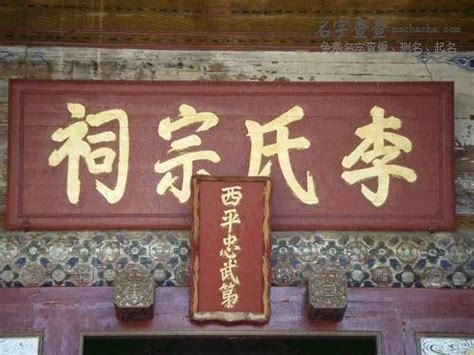 李氏宗祠
西平忠武第
名字查查 mzchacha.com
免费名字查重、测名、起名